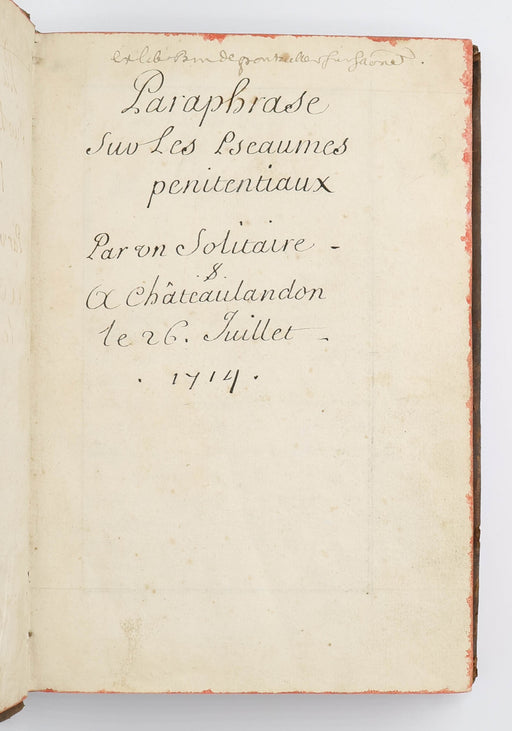 ex lib de pontailler sur saone
Paraphrase
Sur Les Pseaumes
penitentiaux
Par vn Solitaire -
&
A Châteaulandon
le 26. Juillet -
. 1714 .